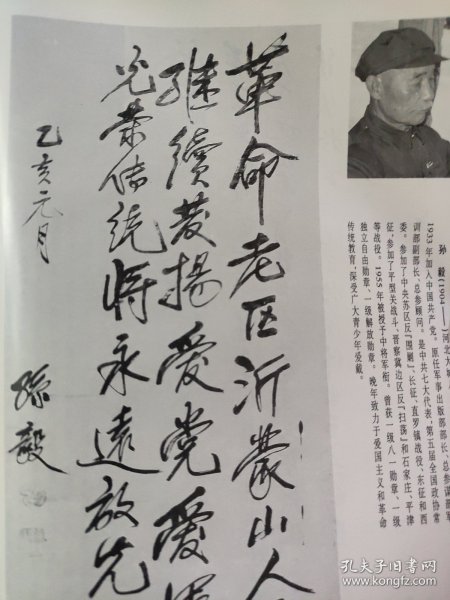 革命老区沂蒙山人
继续发扬爱党爱军
光荣传统将永远放光
乙亥元月
孙毅
孙 毅(1904——)河北大城
1933年加入中国共产党。原任军事出版部部长、总参谋部军
训部副部长、总参顾问。是中共七大代表,第五届全国政协常
委。参加了中央苏区反“围剿”、长征、直罗镇战役、东征和西
征,参加了平型关战斗、晋察冀边区反“扫荡”和石家庄、平津
等战役。1955年被授予中将军衔。曾获一级八一勋章、一级
独立自由勋章、一级解放勋章。晚年致力于爱国主义和革命
传统教育,深受广大青少年爱戴。
孔夫子旧书网
www.kongfz.com